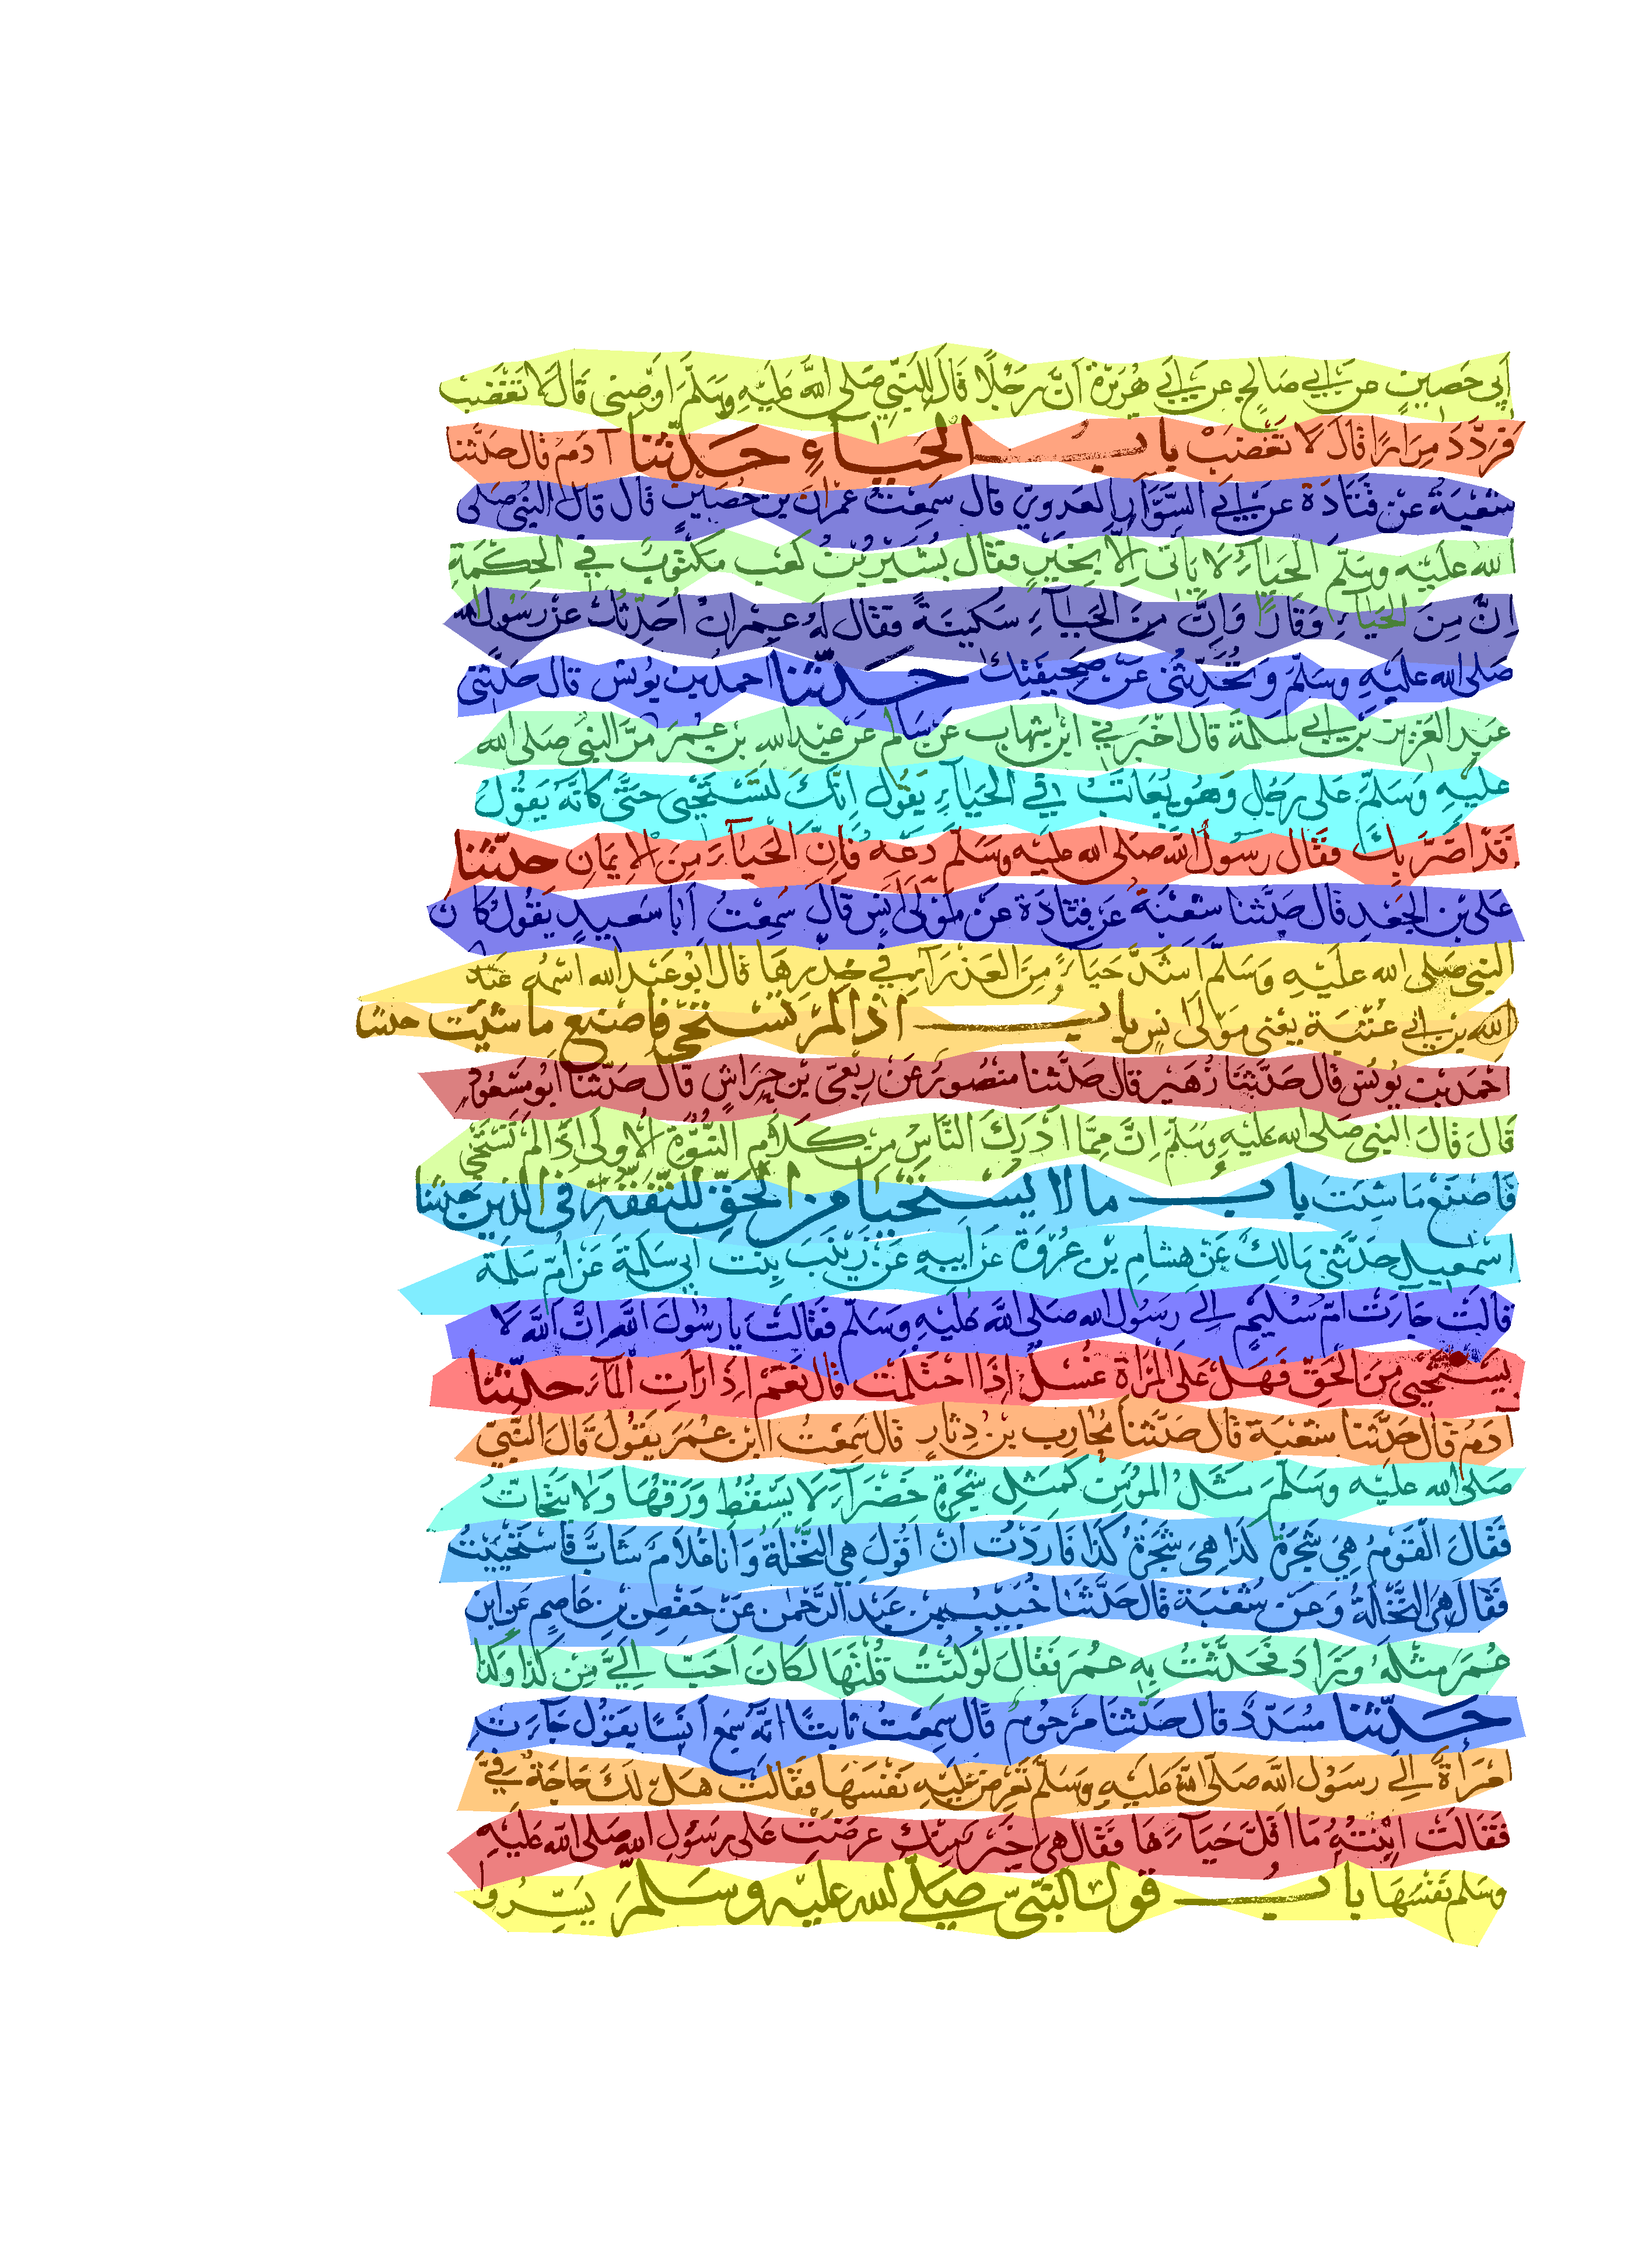 أبي حصين عن أبي صالح عن أبي هريرة أن رجلا قال للنبي صلى الله عليه وسلم أوصني قال لا تغضب
فردد مرارا قال لا تغضب باب الحياء حدثنا آدم قال حدثنا
شعبة عن قتادة عن أبي السوار العدوي قال سمعت عمران بن حصين قال قال النبي صلى
الله عليه وسلم الحياء لا يأتي إلا بخير فقال بشير بن كعب مكتوب في الحكمة
إن من الحياء وقارا وإن من الحياء سكينة فقال له عمران أحدثك عن رسول الله
صلى الله عليه وسلم وتحدثني عن صحيفتك حدثنا احمد بن يونس قال حدثني
عبد العزيز بن أبي سلمة قال أخبرني ابن شهاب عن سالم عن عبد الله بن عمر مر النبي صلى الله
عليه وسلم على رجل وهو يعاتب في الحياء يقول إنك لتستحيي حتى كأنه يقول
قد أضر بك فقال رسول الله صلى الله عليه وسلم دعه فإن الحياء من الإيمان حدثنا
علي بن الجعد قال حدثنا شعبة عن قتادة عن مولى أنس قال سمعت أبا سعيد يقول كان
النبي صلى الله عليه وسلم أشد حياء من العذراء في خدرها قال أبو عبد الله اسمه عبد
الله بن أبي عتبة يعني مولى أنس باب اذا لم تستحي فاصنع ما شئت حدثنا
أحمد بن يونس قال حدثنا زهير قال حدثنا منصور عن ربعي بن حراش قال حدثنا أبو مسعود
قال قال النبي صلى الله عليه وسلم إن مما أدرك الناس من كلام النبوة الأولى إذا لم تستحي
فاصنع ما شئت باب ما لا يستحيا من الحق للتفقه في الدين حدثنا
اسمعيل حدثني مالك عن هشام بن عروة عن أبيه عن زينب بنت أبي سلمة عن أم سلمة
قالت جاءت أم سليم إلى رسول الله صلى الله عليه وسلم فقالت يا رسول الله إن الله لا
يستحيي من الحق فهل على المرأة غسل إذا احتلمت قال نعم إذا رأت الماء حدثنا
آدم قال حدثنا شعبة قال حدثنا محارب بن دثار قال سمعت ابن عمر يقول قال النبي
صلى الله عليه وسلم مثل المؤمن كمثل شجرة خضراء لا يسقط ورقها ولا يتحات
فقال القوم هي شجرة كذا هي شجرة كذا فأردت أن أقول هي النخلة وأنا غلام شاب فاستحييت
فقال هي النخلة وعن شعبة قال حدثنا خبيب بن عبد الرحمن عن حفص بن عاصم عن ابن
عمر مثله وزاد فحدثت به عمر فقال لو كنت قلتها لكان أحب إلي من كذا وكذا
حدثنا مسدد قال حدثنا مرحوم قال سمعت ثابتا انه سمع أنسا يقول جاءت
امرأة إلى رسول الله صلى الله عليه وسلم تعرض عليه نفسها فقالت هل لك حاجة في
فقالت ابنته ما أقل حياءها فقال هي خير منك عرضت على رسول الله صلى الله عليه
وسلم نفسها باب قول النبي صلى الله عليه وسلم يسروا